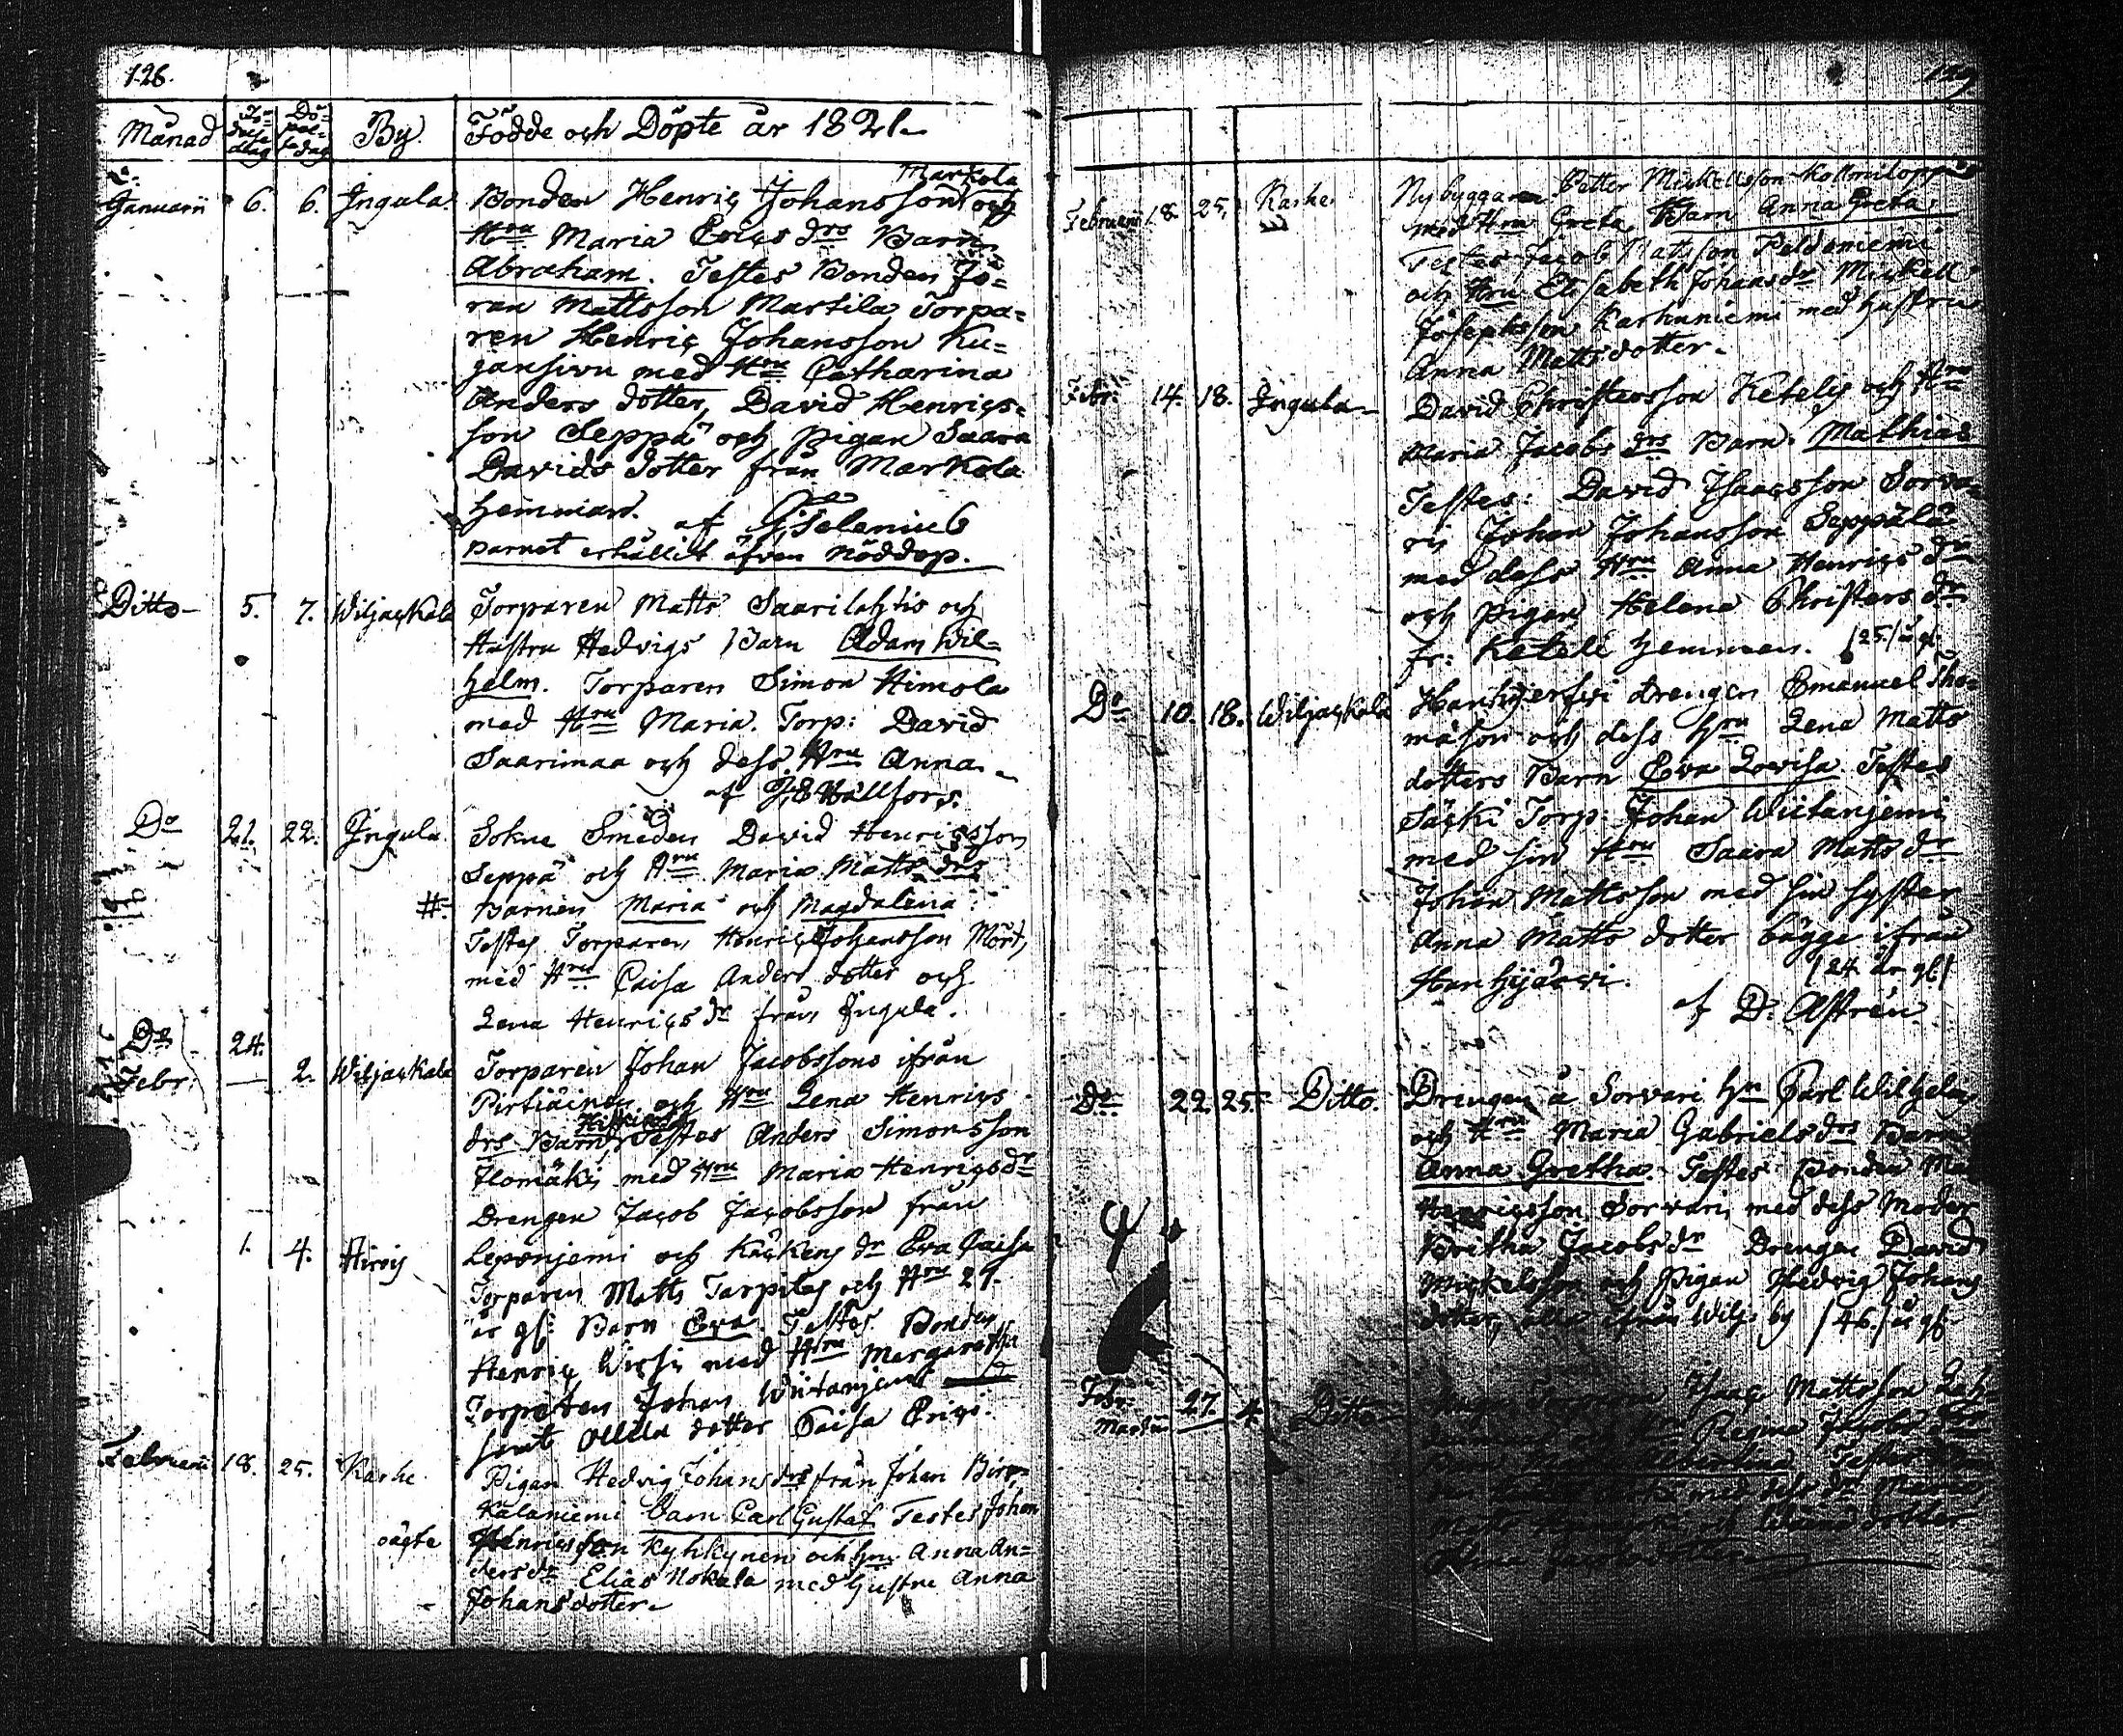 126.
Månad Födelsedag Döpelsedag By. Födde och Döpte år 1821.
Januarii 6. 6. Ingula. Bonden Henric Johansson Markola och
Hru Maria Erics drs Barn
Abraham. Testes Bonden Jö=
ran Mattsson Martila, Torpa=
ren Henric Johansson Ku=
jansivu med Hru Catharina
Anders dotter, David Henrics=
son Seppä och Pigan Saara
Davids dotter från Markola
hemman. af G. Telenius
Barnet erhållit äfven nöddop.
Ditto 5. 7. Wiljackala Torparen Matts Saarilahtis och
Hustru Hedvigs Barn Adam Wil=
helm. Torparen Simon Himola
med Hru Maria. Torp: David
Saarimaa och dess Hru Anna.
af Hällfors.
Do 21. 22. Ingula Sokne Smeden David Henricsson
Seppä och Hru Maria Matts drs
#. Barnen Maria och Magdalena.
Testes Torparen Henric Johansson Mört,
med Hru Caisa Anders dotter och
Lena Henrics dr från Ingula.
Do 24.
Febr: — 2. Wiljackala Torparen Johan Jacobssons ifrån
och Hru Lena Henrics
drs Barn Testes Anders Simonsson
Ilomäki med Hru Maria Henricsdr
Drengen Jacob Jacobsson från
1. 4. Hirois Leponjemi och dr Eva Caisa
Torparen Matts Tarpilas och Hru 29.
år gl: Barn Eva. Testes Bonden
Henric med Hru Margaretha
Torparen Johan Wiitanjemi
samt dotter Caisa Erici.
Februarii 18. 25. Karhe Pigan Hedvig Johans drs från Johan
Kalaniemi barn Carl Gustaf Testes Johan
oägte Henricsson Kyhkynen och hru Anna An=
dersdr Elias Nokala med Hustru Anna
Johansdotter.
Februarii 18. 25. Karhe Nybyggaren Petter Mickellsson
med Hru Greta Barn Anna Greta.
Testes Jacob Mattsson Peldoniemi
och Hru Elisabeth Johansdr Mickell
Josephsson Karhuniemi med hustru
Anna Mattsdotter.
Febr: 14. 18. Ingula David Christersson Ketelis och Hru
Maria Jacobs drs Barn. Mathias
Testes: David Isaacsson Sorva=
ri Johan Johansson Seppälä
med dess Hru Anna Henrics dr
och Pigan Helena Christers dr
fr: Keteli hemman. /25./ år gl.
Do 10. 18. Wiljackala Drengen Emanuel Tho=
mäson och dess hru Lena Matts
dotters Barn Eva Lovisa Testes
Torp: Johan Wiitanjemi
med sin Hru Saara Matts dr
Johan Mattsson med sin syster
Anna Matts dotter bägge ifrån
Hanhijärvi. /24 år gl/
af D. Astrén
Do 22. 25. Ditto. Drengen å Sorvari hn Carl Wilhelm
och Hru Maria Gabriels drs Barn
Anna Gretha. Testes Bonden
Henricsson Sorvari, med dess Moder
Britha Jacobsdr Drengen David
Mickelsson och Pigan Hedvig Johans
dotter, alla ifrån Wilj. by /46./ år gl.
Febr: 27.
Martii 4. Ditto Isaac Mattsson
Hru Regina
Testes
med dess dr Maria
dotter